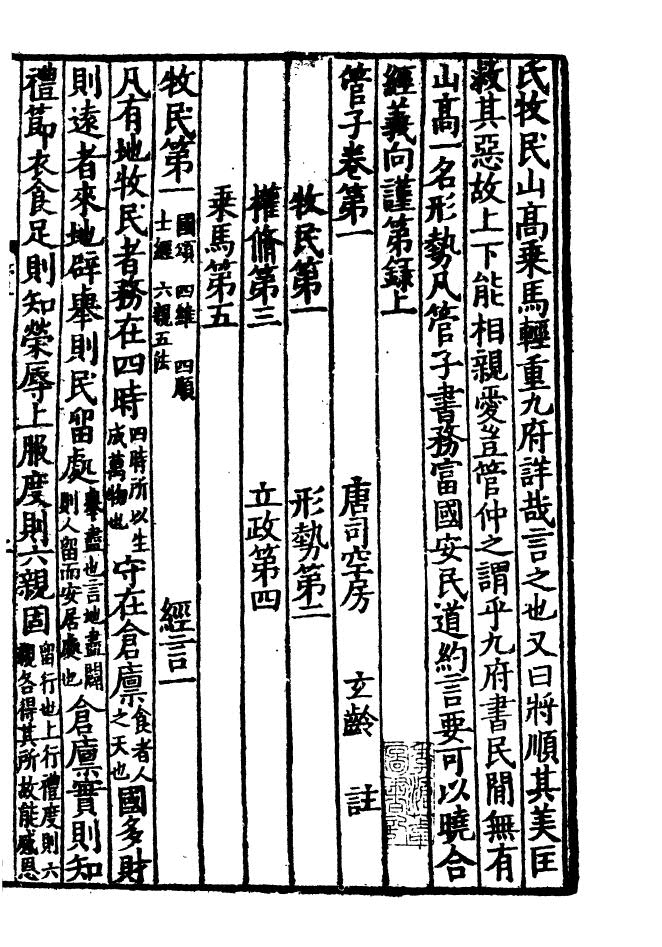 氏牧民山髙乗馬輕重九府詳哉言之也又曰將順其美匡
救其惡故上下能相親愛豈管仲之謂乎九府書民閒無有
山髙一名形勢凡管子書務富國安民道約言要可以曉合
經義向謹第録上
管子卷第一 唐司空房 玄齡 註
牧民第一 形勢第二
權脩第三 立政第四
乗馬第五
牧民第一 國頌 四維 四順
士經 六親五法 經言一
凡有地牧民者務在四時 四時所以生
成萬物也 守在倉廪 食者人
之天也 國多財
則遠者來地辟舉則民留處 舉盡也言地盡闢
則人留而安居處也 倉廪實則知
禮節衣食足則知榮辱上服度則六親固 服行也上行禮度則六
親各得其所故能感恩